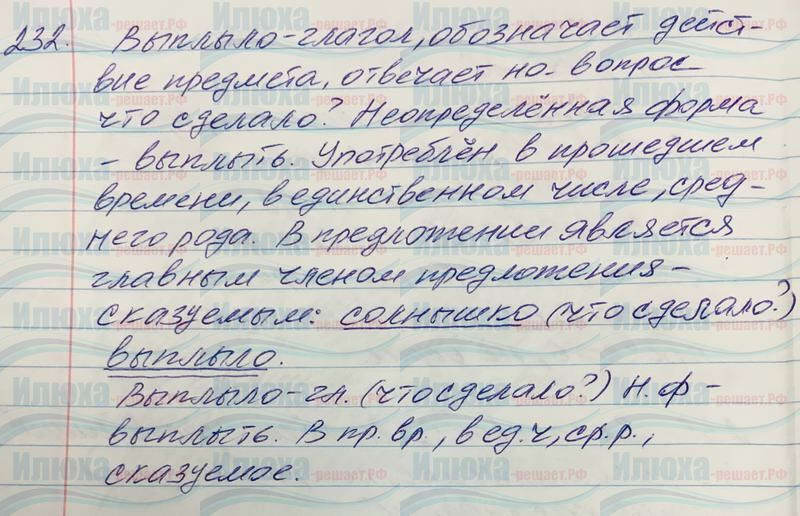 232. Выплыло-глагол, обозначает дейст-
вие предмета, отвечает на вопрос
что сделало? Неопределённая форма
- выплыть. Употреблён в прошедшем
времени, в единственном числе, сред-
него рода. В предложении является
главным членом предложения-
сказуемым: солнышко (что сделало?)
выплыло.
Выплыло-гл. (что сделало?) Н.ф-
выплыть. В пр.вр., в ед.ч, ср.р.,
сказуемое.